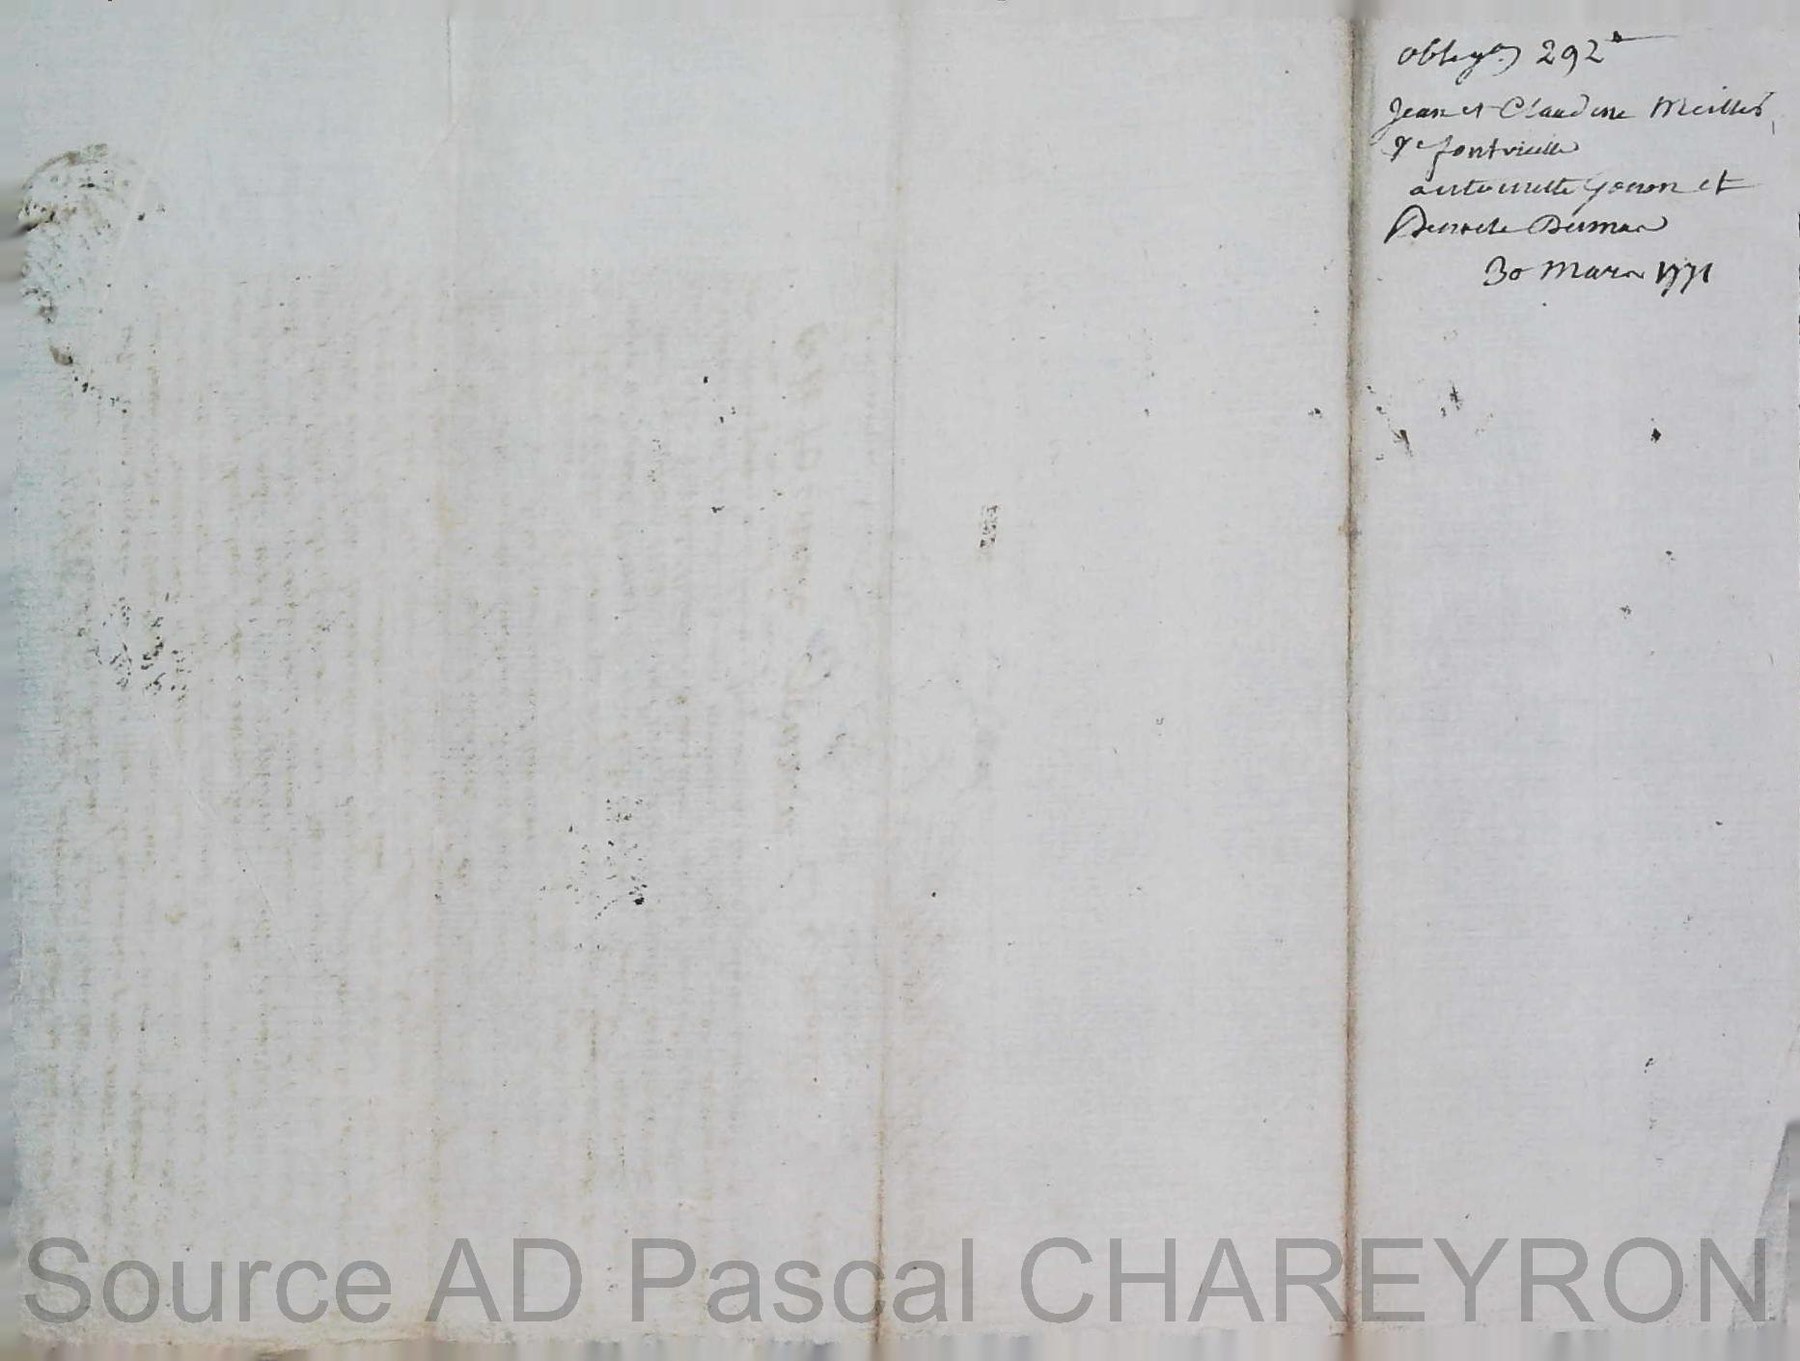 obligon 292#
Jean et Claudine Meilles
pr fontvieille
antoinette gonon et
Benoite Dumas
30 Mars 1771
Source AD Pascal CHAREYRON